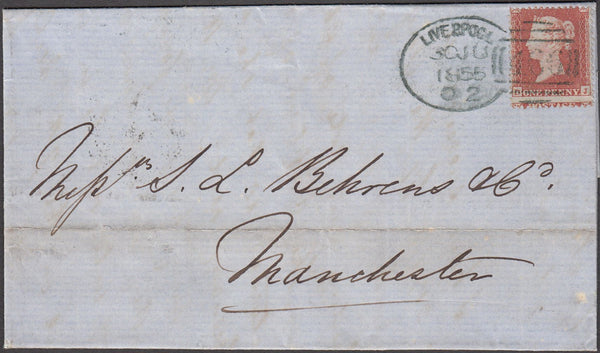 LIVERPOOL
30 JU
1855
O 2
D ONE PENNY J
Messrs. S. L. Behrens & Co.
Manchester